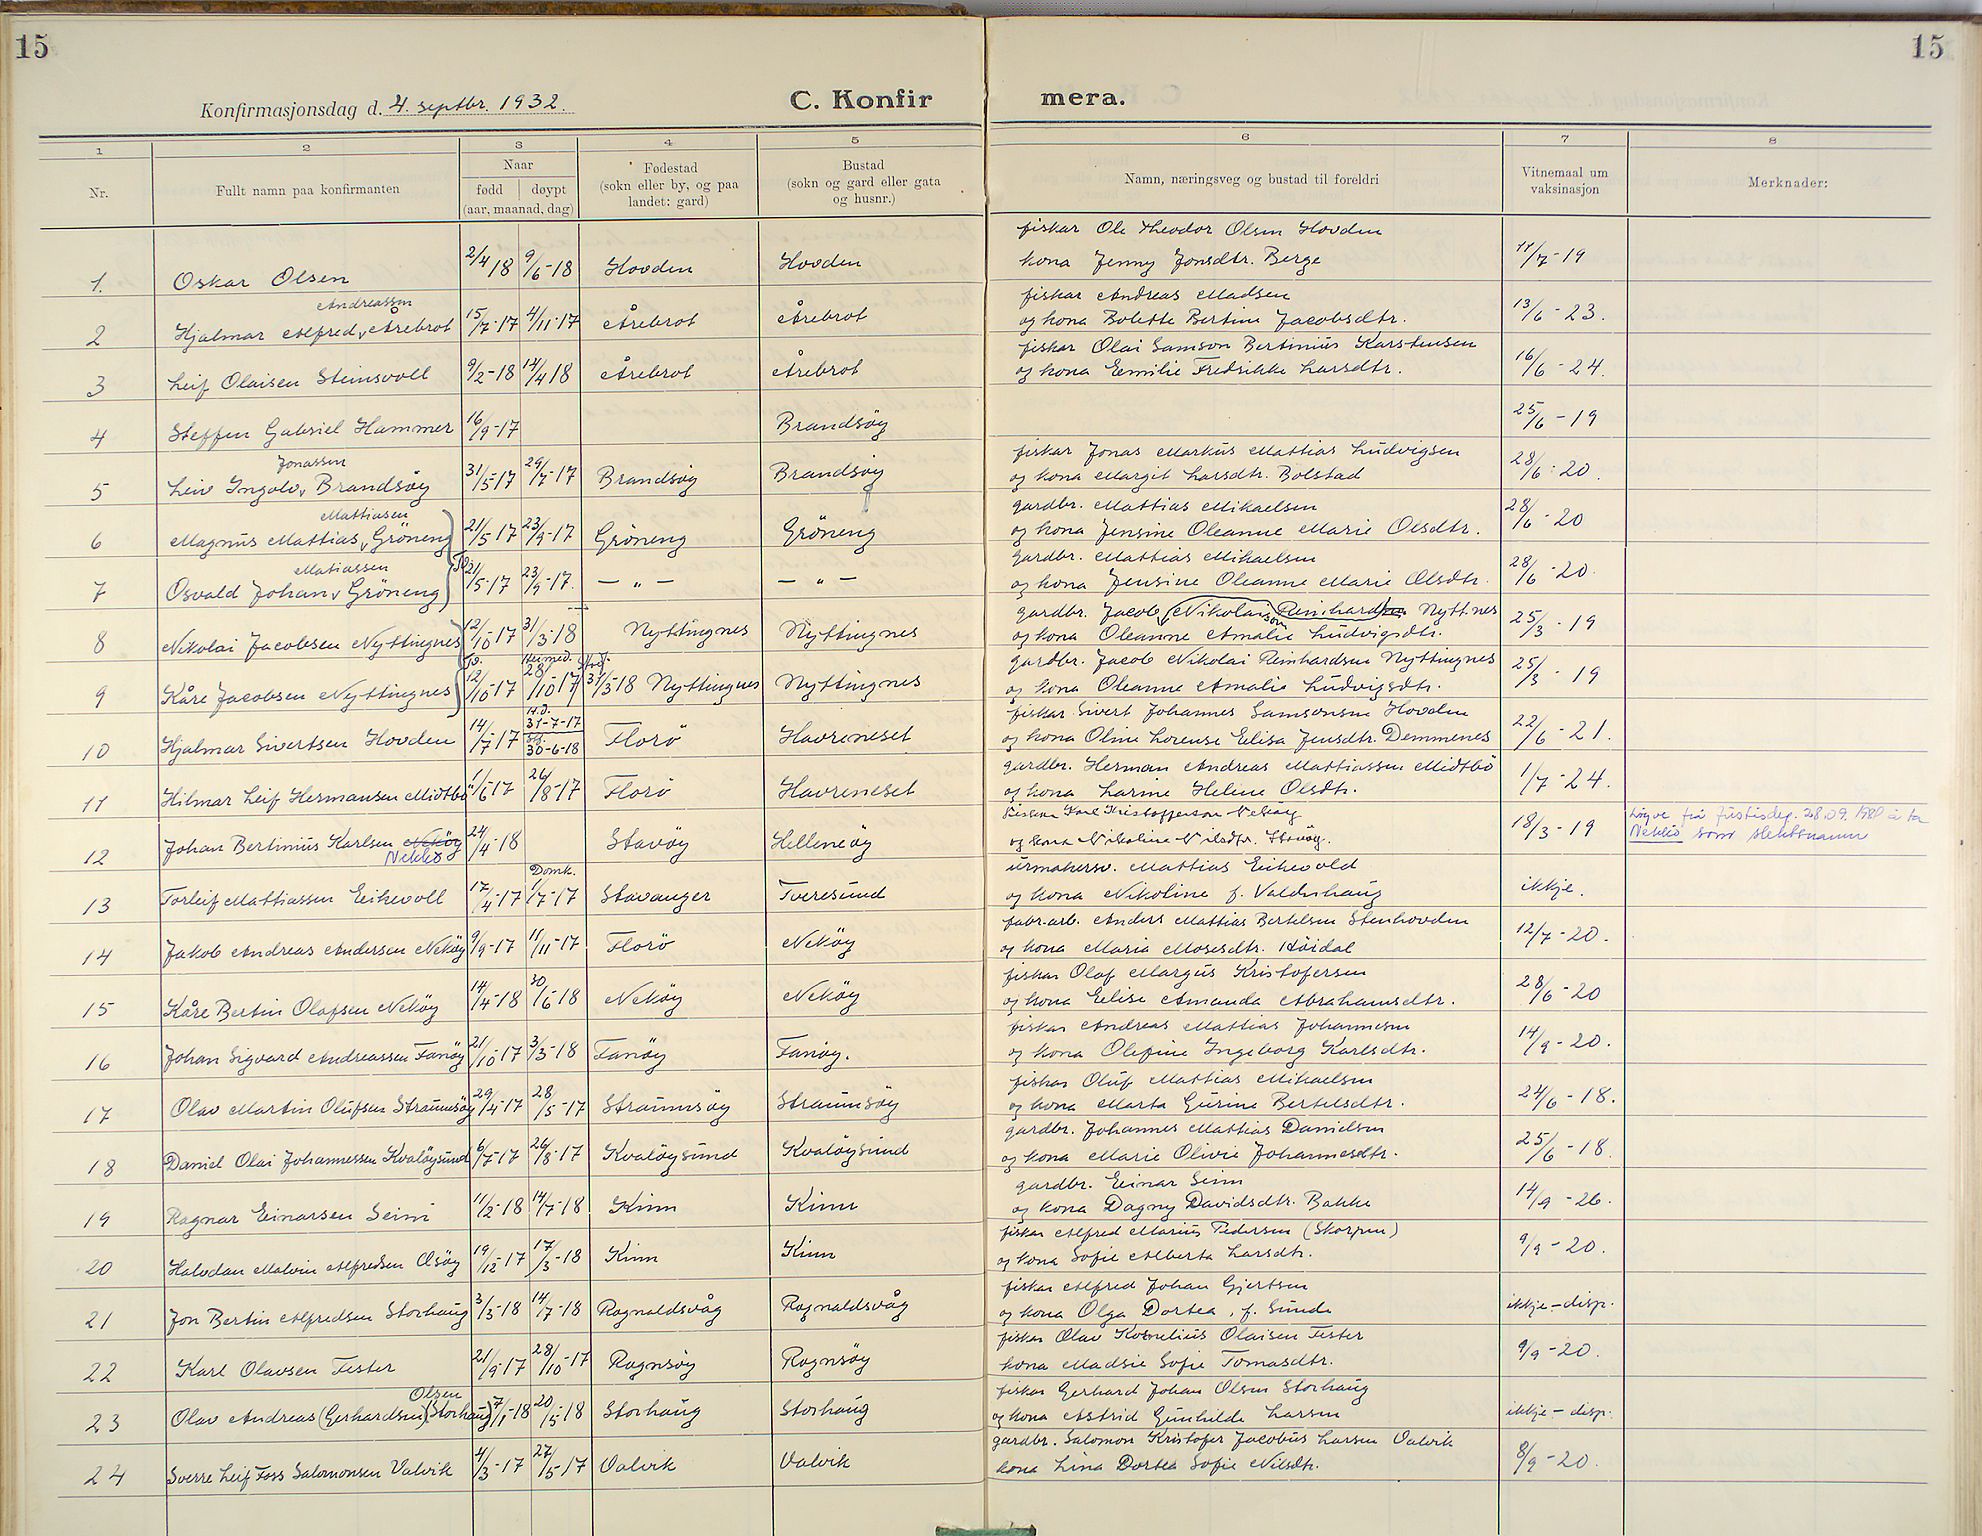 15
15
Konfirmasjonsdag d. 4. septbr. 1932.
C. Konfir
mera.
1 2 3 4 5 6 7 8
Nr.
Fullt namn paa konfirmanten
Naar
fødd døypt
(aar, maanad, dag)
Fødestad
(sokn eller by, og paa
landet: gard)
Bustad
(sokn og gard eller gata
og husnr.)
Namn, næringsveg og bustad til foreldri
Vitnemaal um
vaksinasjon
Merknader:
fiskar Ole Theodor Olsen Hovden
1. Oskar Olsen 2/4 18 9/6-18 Hovden Hovden kona Jenny Jonsdtr. Berge 11/7-19
Andreassen
fiskar Andreas Madsen
2 Hjalmar Alfred Årebrot 15/7-17 4/11-17 Årebrot Årebrot og kona Bolette Bertine Jacobsdtr. 13/6-23.
fiskar Olai Samson Bertinius Karstensen
3 Leif Olaisen Steinsvoll 9/2-18 14/4 18 Årebrot Årebrot og kona Emilie Fredrikke Larsdtr. 16/6-24.
4 Steffen Gabriel Hammer 16/9-17 Brandsöy 25/6-19
Jonassen
fiskar Jonas Markus Mattias Ludvigsen
5 Leiv Ingolv Brandsöy 31/5-17 29/7-17 Brandsöy Brandsöy og kona Margit Larsdtr. Bolstad 28/6-20.
Mattiasen
gardbr. Mattias Mikaelsen
6 Magnus Mattias Gröneng 21/5-17 23/9-17 Gröneng Gröneng og kona Jensine Oleanne Marie Olsdtr. 28/6-20
Matiassen
gardbr. Mattias Mikaelsen
7 Osvald Johan Gröneng Tv. 21/5-17 23/9-17. — „ — — „ — og kona Jensine Oleanne Marie Olsdtr. 28/6-20.
gardbr. Jacob Nikolai Reinhardsen Nyttnes
8 Nikolai Jacobsen Nyttingnes 12/10-17 31/3-18 Nyttingnes Nyttingnes og kona Oleanne Amalie Ludvigsdtr. 25/3-19
Tv. Heimed. Stad.
gardbr. Jacob Nikolai Reinhardsen Nyttingnes
9 Kåre Jacobsen Nyttingnes 12/10-17 28/10-17 31/3-18 Nyttingnes Nyttingnes og kona Oleanne Amalie Ludvigsdtr. 25/3-19
H.d.
fiskar Sivert Johannes Samsonsen Hovden
10 Hjalmar Sivertsen Hovden 14/7-17 31-7-17 30-6-18 Florö Havreneset og kona Oline Lorense Elisa Jensdtr. Demmenes 22/6-21.
gardbr. Herman Andreas Mattiassen Midtbö
11 Hilmar Leif Hermansen Midtbö 1/6-17 26/8-17 Florö Havreneset og kona Larine Helene Olsdtr. 1/7-24.
Karl Kristofferson Neköy
12 Johan Bertinius Karlsen Neköy 24/4-18 Stavöy Helleneöy og kona Nikoline Nilsdtr. Stavöy. 18/3-19 Löyve frå justisdep. 28.09.1980 å ta
Neklo Neklo som slektsnamn
Domk.
urmakersv. Mattias Eikevold
13 Torleif Mattiassen Eikevoll 17/4-17 1/7-17 Stavanger Tveresund og kona Nikoline f. Valderhaug ikkje.
fabr.arb. Anders Mattias Bertelsen Stenhovden
14 Jakob Andreas Andersen Neköy 9/9-17 11/11-17 Florö Neköy og kona Maria Mosesdtr. Höidal 12/7-20.
fiskar Olaf Margus Kristofersen
15 Kåre Bertin Olafsen Neköy 14/4-18 30/6-18 Neköy Neköy og kona Elise Amanda Abrahamsdtr. 28/6-20
fiskar Andreas Mattias Johannesen
16 Johan Sigvard Andreassen Fanöy 21/10-17 3/3-18 Fanöy Fanöy. og kona Olefine Ingeborg Karlsdtr. 14/9-20.
fiskar Oluf Mattias Mikaelsen
17 Olav Martin Olufsen Straumsöy 29/4-17 28/5-17 Straumsöy Straumsöy og kona Marta Gurine Bertelsdtr. 24/6-18.
gardbr. Johannes Mattias Danielsen
18 Daniel Olai Johannessen Kvalöysund 6/7-17 26/8-17 Kvalöysund Kvalöysund og kona Marie Olivie Johannesdtr. 25/6-18.
gardbr. Einar Seim
19 Ragnar Einarsen Seim 11/2-18 14/7-18 Kinn Kinn og kona Dagny Davidsdtr. Bakke 14/9-26.
fiskar Alfred Marius Pedersen (Skorpen)
20 Halvdan Malvin Alfredsen Osöy 19/12-17 17/3-18 Kinn Kinn og kona Sofie Alberta Larsdtr. 9/9-20.
fiskar Alfred Johan Gjertsen
21 Jon Bertin Alfredsen Storhaug 3/3-18 14/7-18 Rognaldsvåg Rognaldsvåg og kona Olga Dortea, f. Sunde ikkje – disp.
fiskar Olav Kornelius Olaisen Fester
22 Karl Olavsen Fester 21/9-17 28/10-17 Rognsöy Rognsöy kona Madsie Sofie Tomasdtr. 9/9-20.
Olsen
fiskar Gerhard Johan Olsen Storhaug
23 Olav Andreas (Gerhardsen) Storhaug 7/1-18 20/5-18 Storhaug Storhaug og kona Astrid Gunhilde Larsen ikkje – disp.
gardbr. Salomon Kristofer Jacobus Larsen Valvik
24 Sverre Leif Foss Salomonsen Valvik 4/3-17 27/5-17 Valvik Valvik kona Lina Dortea Sofie Nilsdtr. 8/9-20.